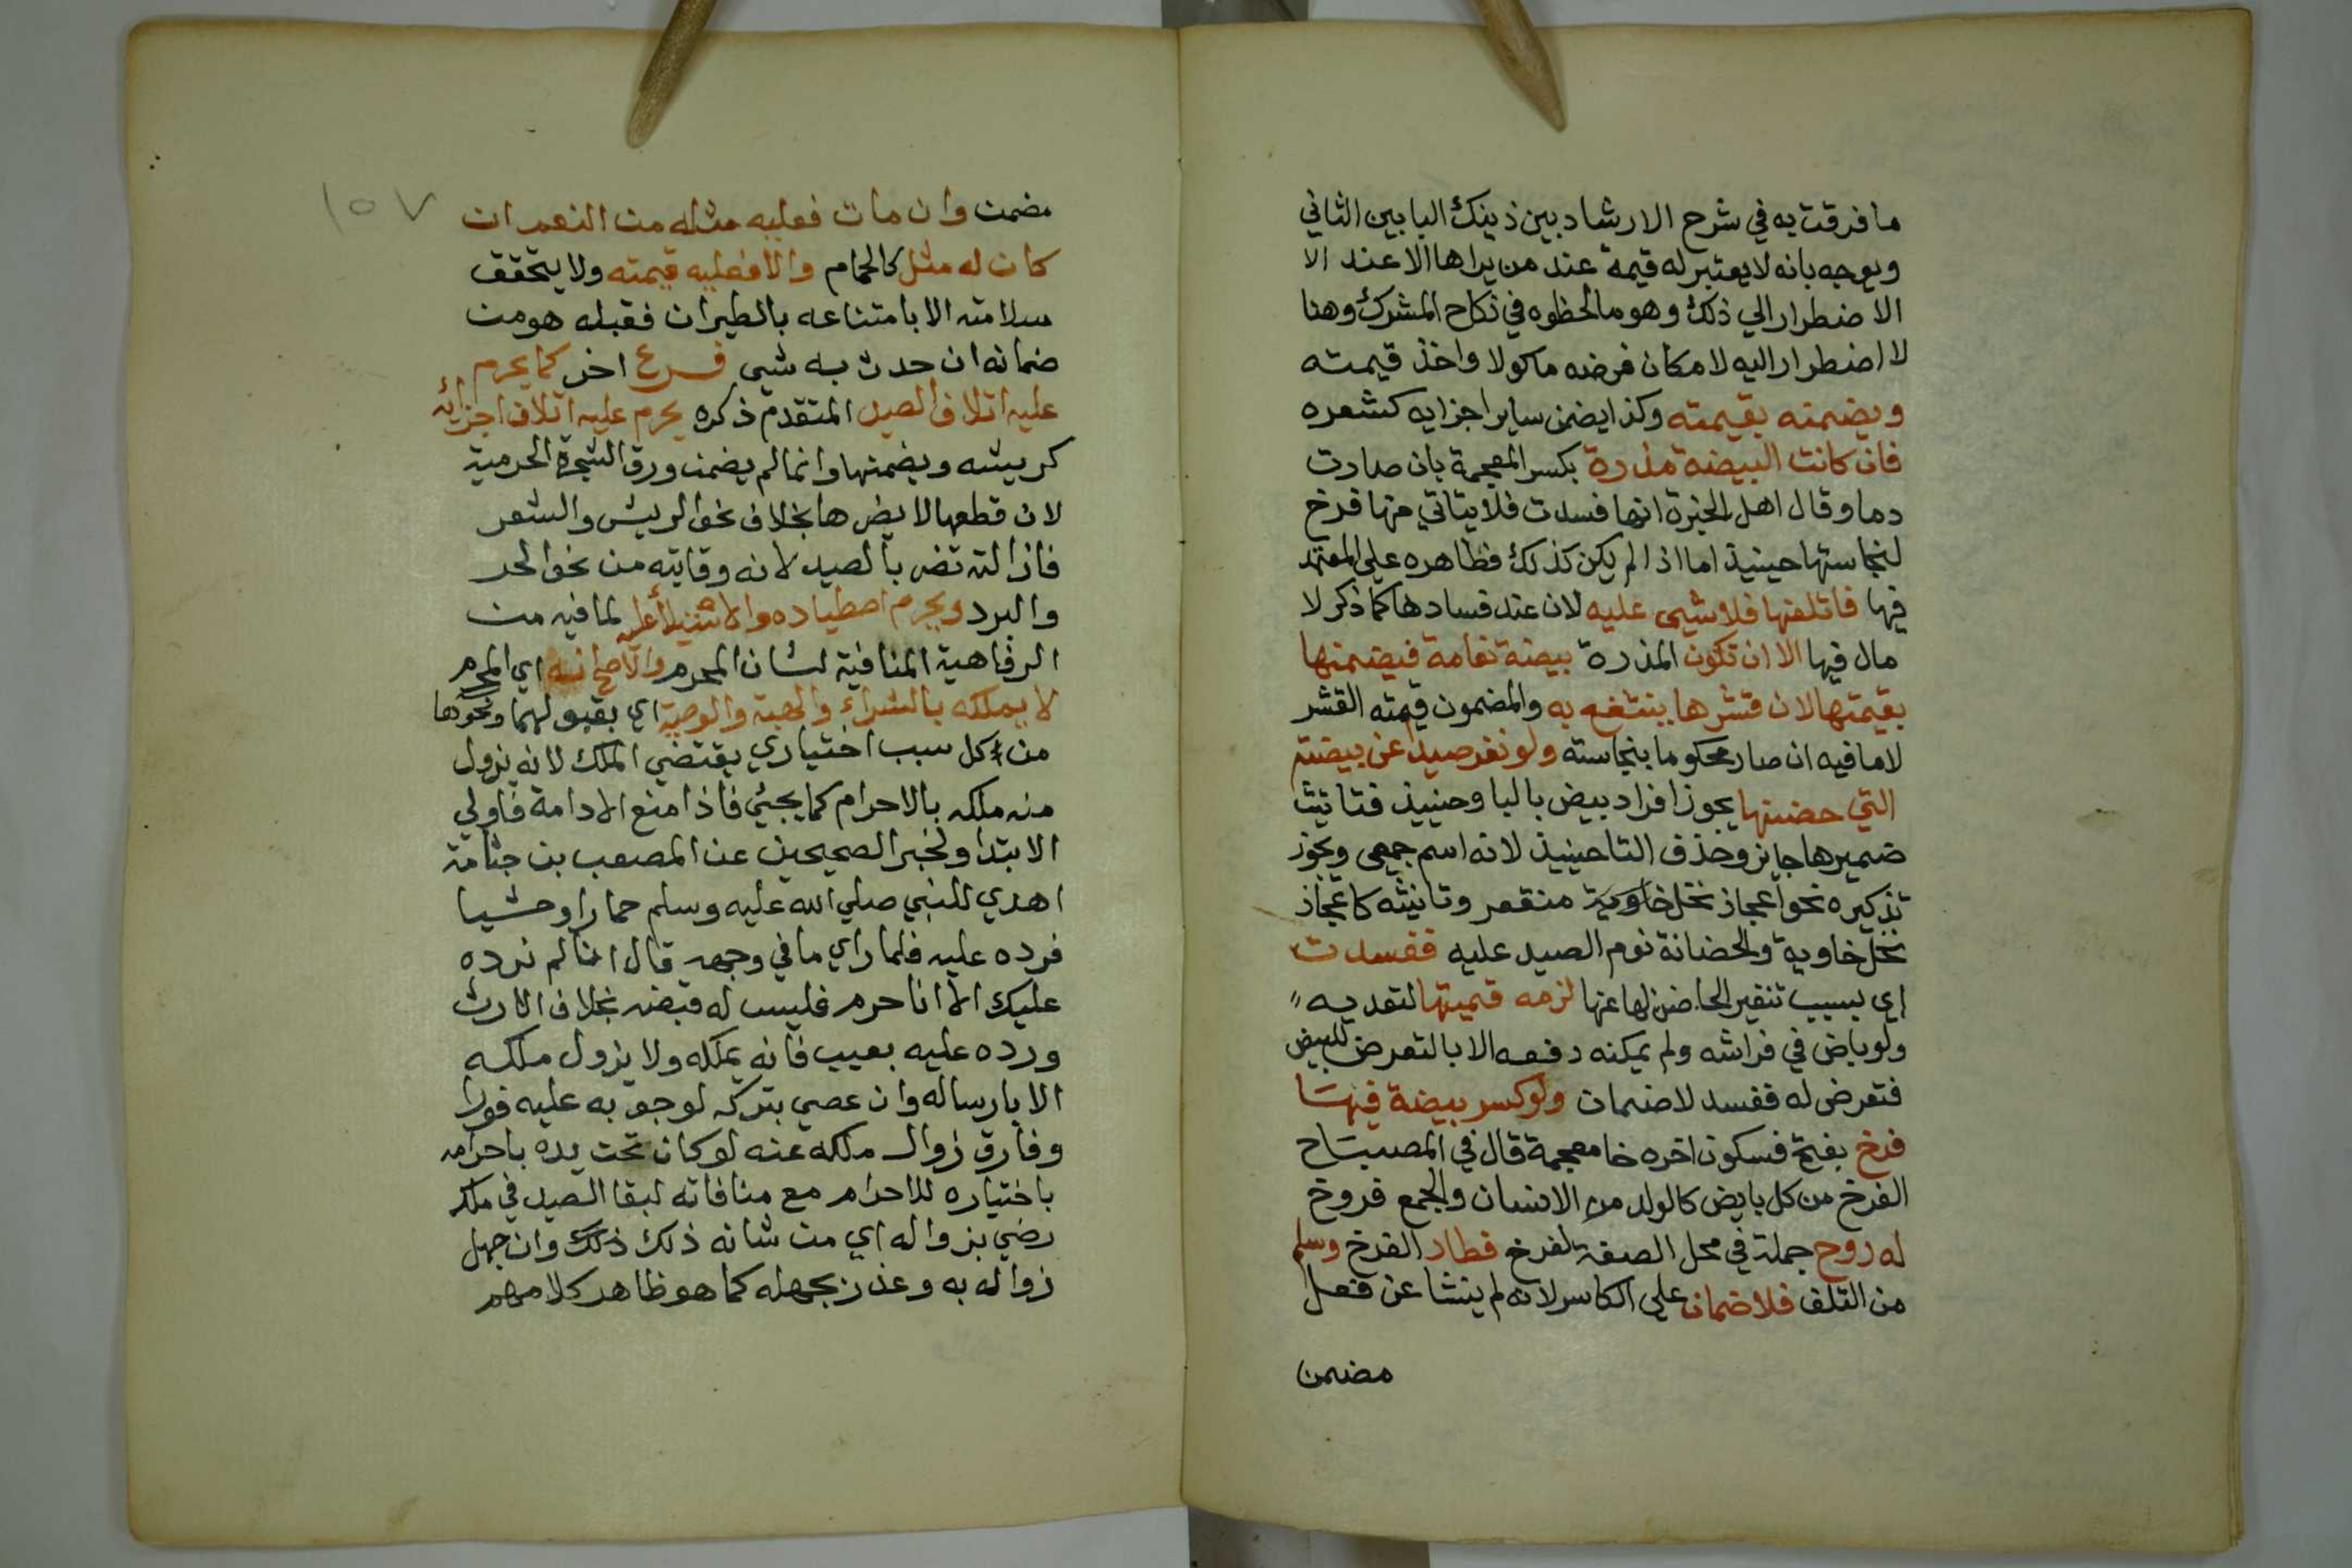 ما فرقت به في شرح الارشاد بين ذينك البابين الثاني
ويوجه بانه لا يعتبر له قيمة عند من يراها الا عند الا
الاضطرار الي ذلك وهو مالحظوه في نكاح المشرك وهنا
لا اضطرار اليه لامكان فرضه ماكولا واخذ قيمته
ويضمنه بقيمته وكذا يضمن ساير اجزايه كشعره
فان كانت البيضة مذرة بكسر المعجمة بان صارت
دما وقال اهل الخبرة انها فسدت فلا يتاتي منها فرخ
لنجاستها حينيذ اما اذا لم يكن كذلك فظاهره علي المعتمد
فيها فاتلفها فلا شيى عليه لان عند فسادها كما ذكر لا
مال فيها الا ان تكون المذرة بيضة نعامة فيضمنها
بقيمتها لان قشرها ينتفع به والمضمون قيمته القشر
لا ما فيه ان صار محكوما بنجاسته ولو نفر صيدا عن بيضته
التي حضنها يجوز افراد بيض باليا وحنييذ فتانيث
ضميرها جايز وحذف التا حينيذ لانه اسم جمعي ويجوز
تذكيره نحو اعجاز نخل خاوية منقعر وتانيثه كاعجاز
نخل خاوية والحضانة نوم الصيد عليه ففسدت
اي بسبب تنفير الحاضن لها عنها لزمه قيمتها لتعديه
ولو باض في فراشه ولم يمكنه دفعه الا بالتعرض للبيض
فتعرض له ففسد لا ضمان ولو كسر بيضة فيها
فرخ بفتح فسكون اخره خا معجمة قال في المصباح
الفرخ من كل بايض كالولد من الانسان والجمع فروخ
له روح جملة في محل الصفة لفرخ فطار الفرخ وسلم
من التلف فلا ضمان علي الكاسر لانه لم ينشا عن فعل
مضمن
١٥٧
مضمن وان مات فعليه مثله من النعم ان
كان له مثل كالحمام والا فعليه قيمته ولا يتحقق
سلامته الا بامتناعه بالطيران فقبله هو من
ضمانه ان حدث به شيى فرع اخر كما يحرم
عليه اتلاف الصيد المتقدم ذكره يحرم عليه اتلاف اجزائه
كريشه ويضمنها وانما لم يضمن ورق الشجرة الحرمية
لان قطعها لا يضرها بخلاف نحو الريش والشعر
فازالته تضر بالصيد لانه وقايته من نحو الحر
والبرد ويحرم اصطياده والاستيلا عليه لما فيه من
الرفاهية المنافية لشان المحرم والاصح انه اي المحرم
لا يملكه بالشراء والهبة والوصية اي بقبولهما ونحوها
من كل سبب اختياري يقتضي الملك لانه يزول
منه ملكه بالاحرام كما يجيئ فاذا منع الادامة فاولي
الابتدا ولخبر الصحيحين عن المصعب بن جثامة
اهدي للنبي صلي الله عليه وسلم حمارا وحشيا
فرده عليه فلما راي ما في وجهه قال انا لم نرده
عليك الا انا حرم فليس له قبضه بخلاف الارث
ورده عليه بعيب فانه يملكه ولا يزول ملكه
الا بارساله وان عصي بتركه لوجوبه عليه فورا
وفارق زوال ملكه عنه لو كان تحت يده باحرامه
باختياره للاحرام مع منافاته لبقا الصيد في ملكه
رضي بزواله اي من شانه ذلك ذلك وان جهل
زواله به وعذر بجهله كما هو ظاهر كلامهم